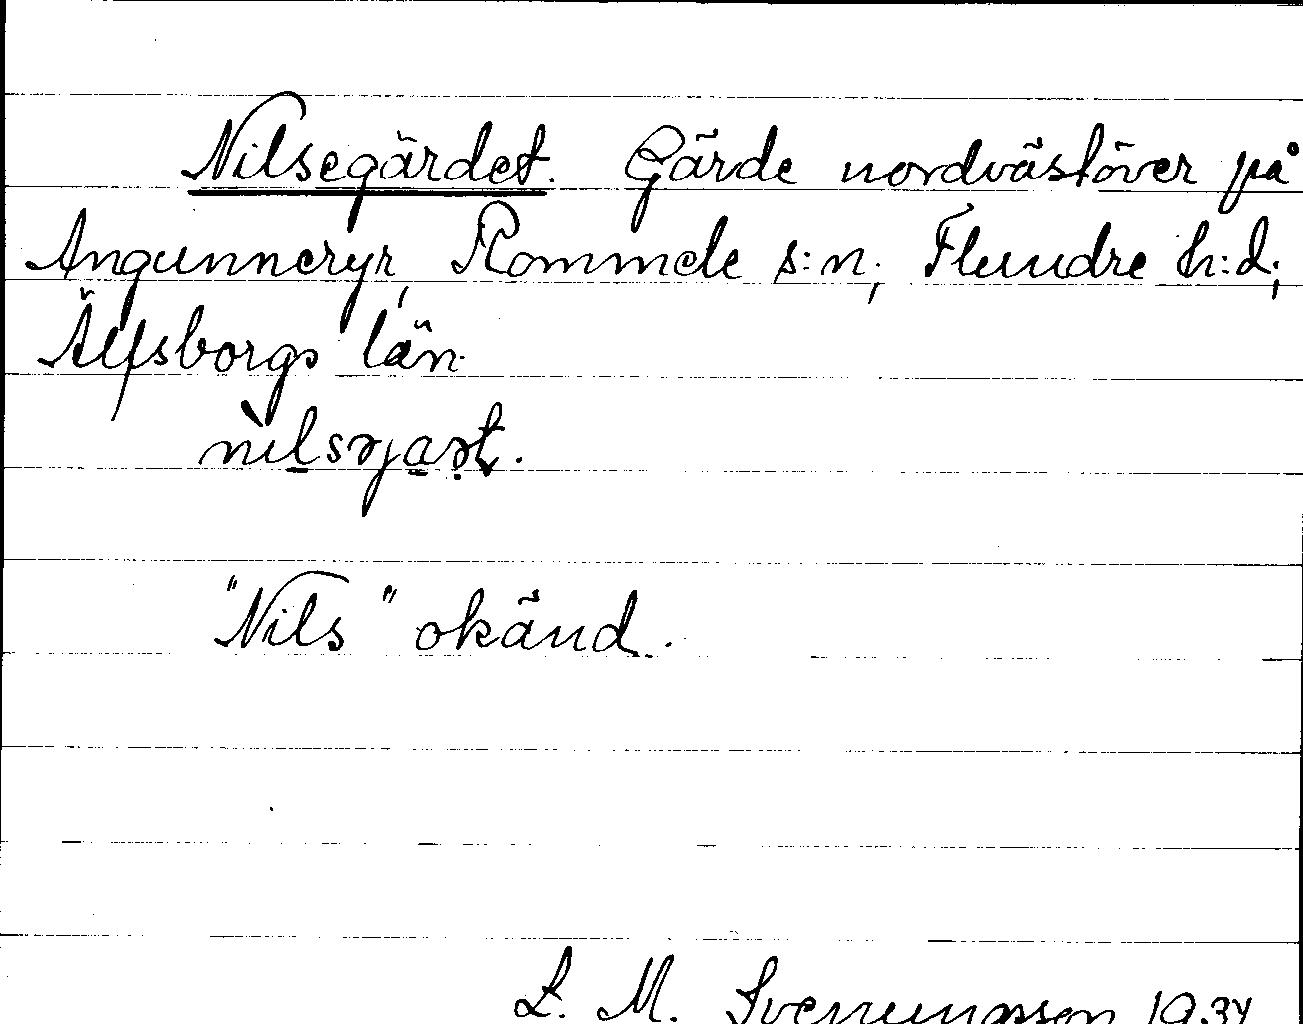 Nilsegärdet. Gärde nordvästöver på
Angunneryr, Rommele s:n; Flundre h:d;
Älfsborgs län.
nılsɤjaɤt.
"Nils" okänd.
L. M. Svenungsson 1934